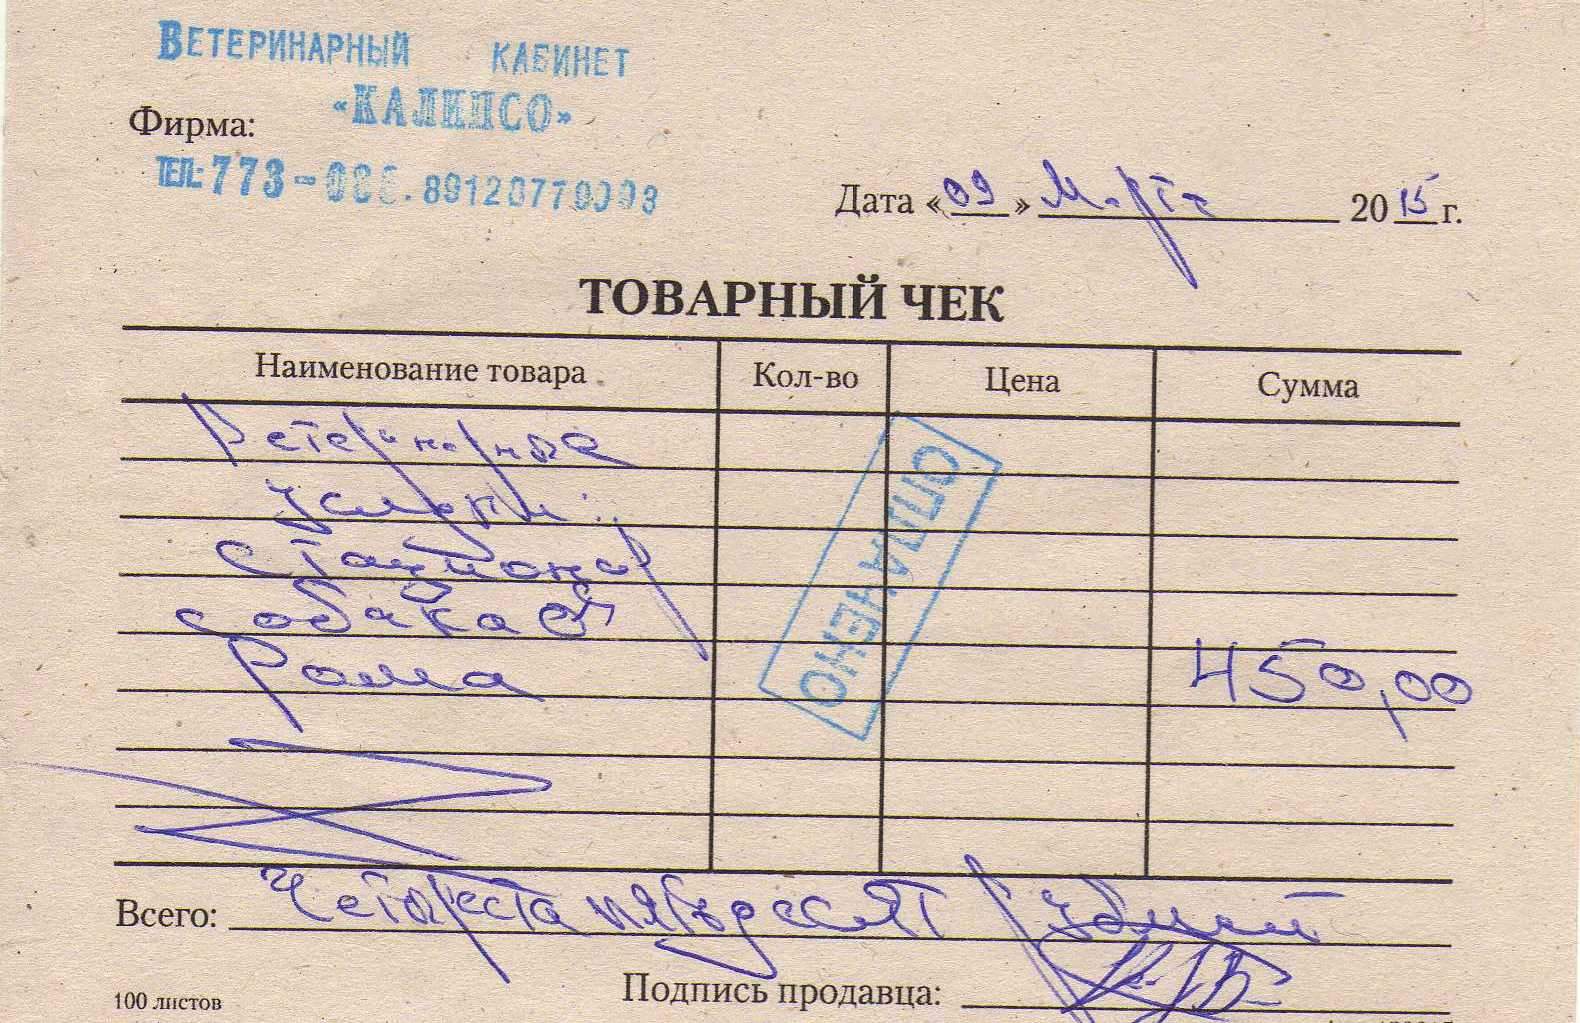 ВЕТЕРИНАРНЫЙ КАБИНЕТ
«КАЛИПСО»
Фирма:
ТЕЛ: 773-086. 89120779093
Дата «09» Марта 2015 г.
ТОВАРНЫЙ ЧЕК
Наименование товара Кол-во Цена Сумма
Ветеринарные
услуги:
стационар
собака
Рома 450,00
ОПЛАЧЕНО
Всего: Четыреста пятьдесят рублей
Подпись продавца:
100 листов